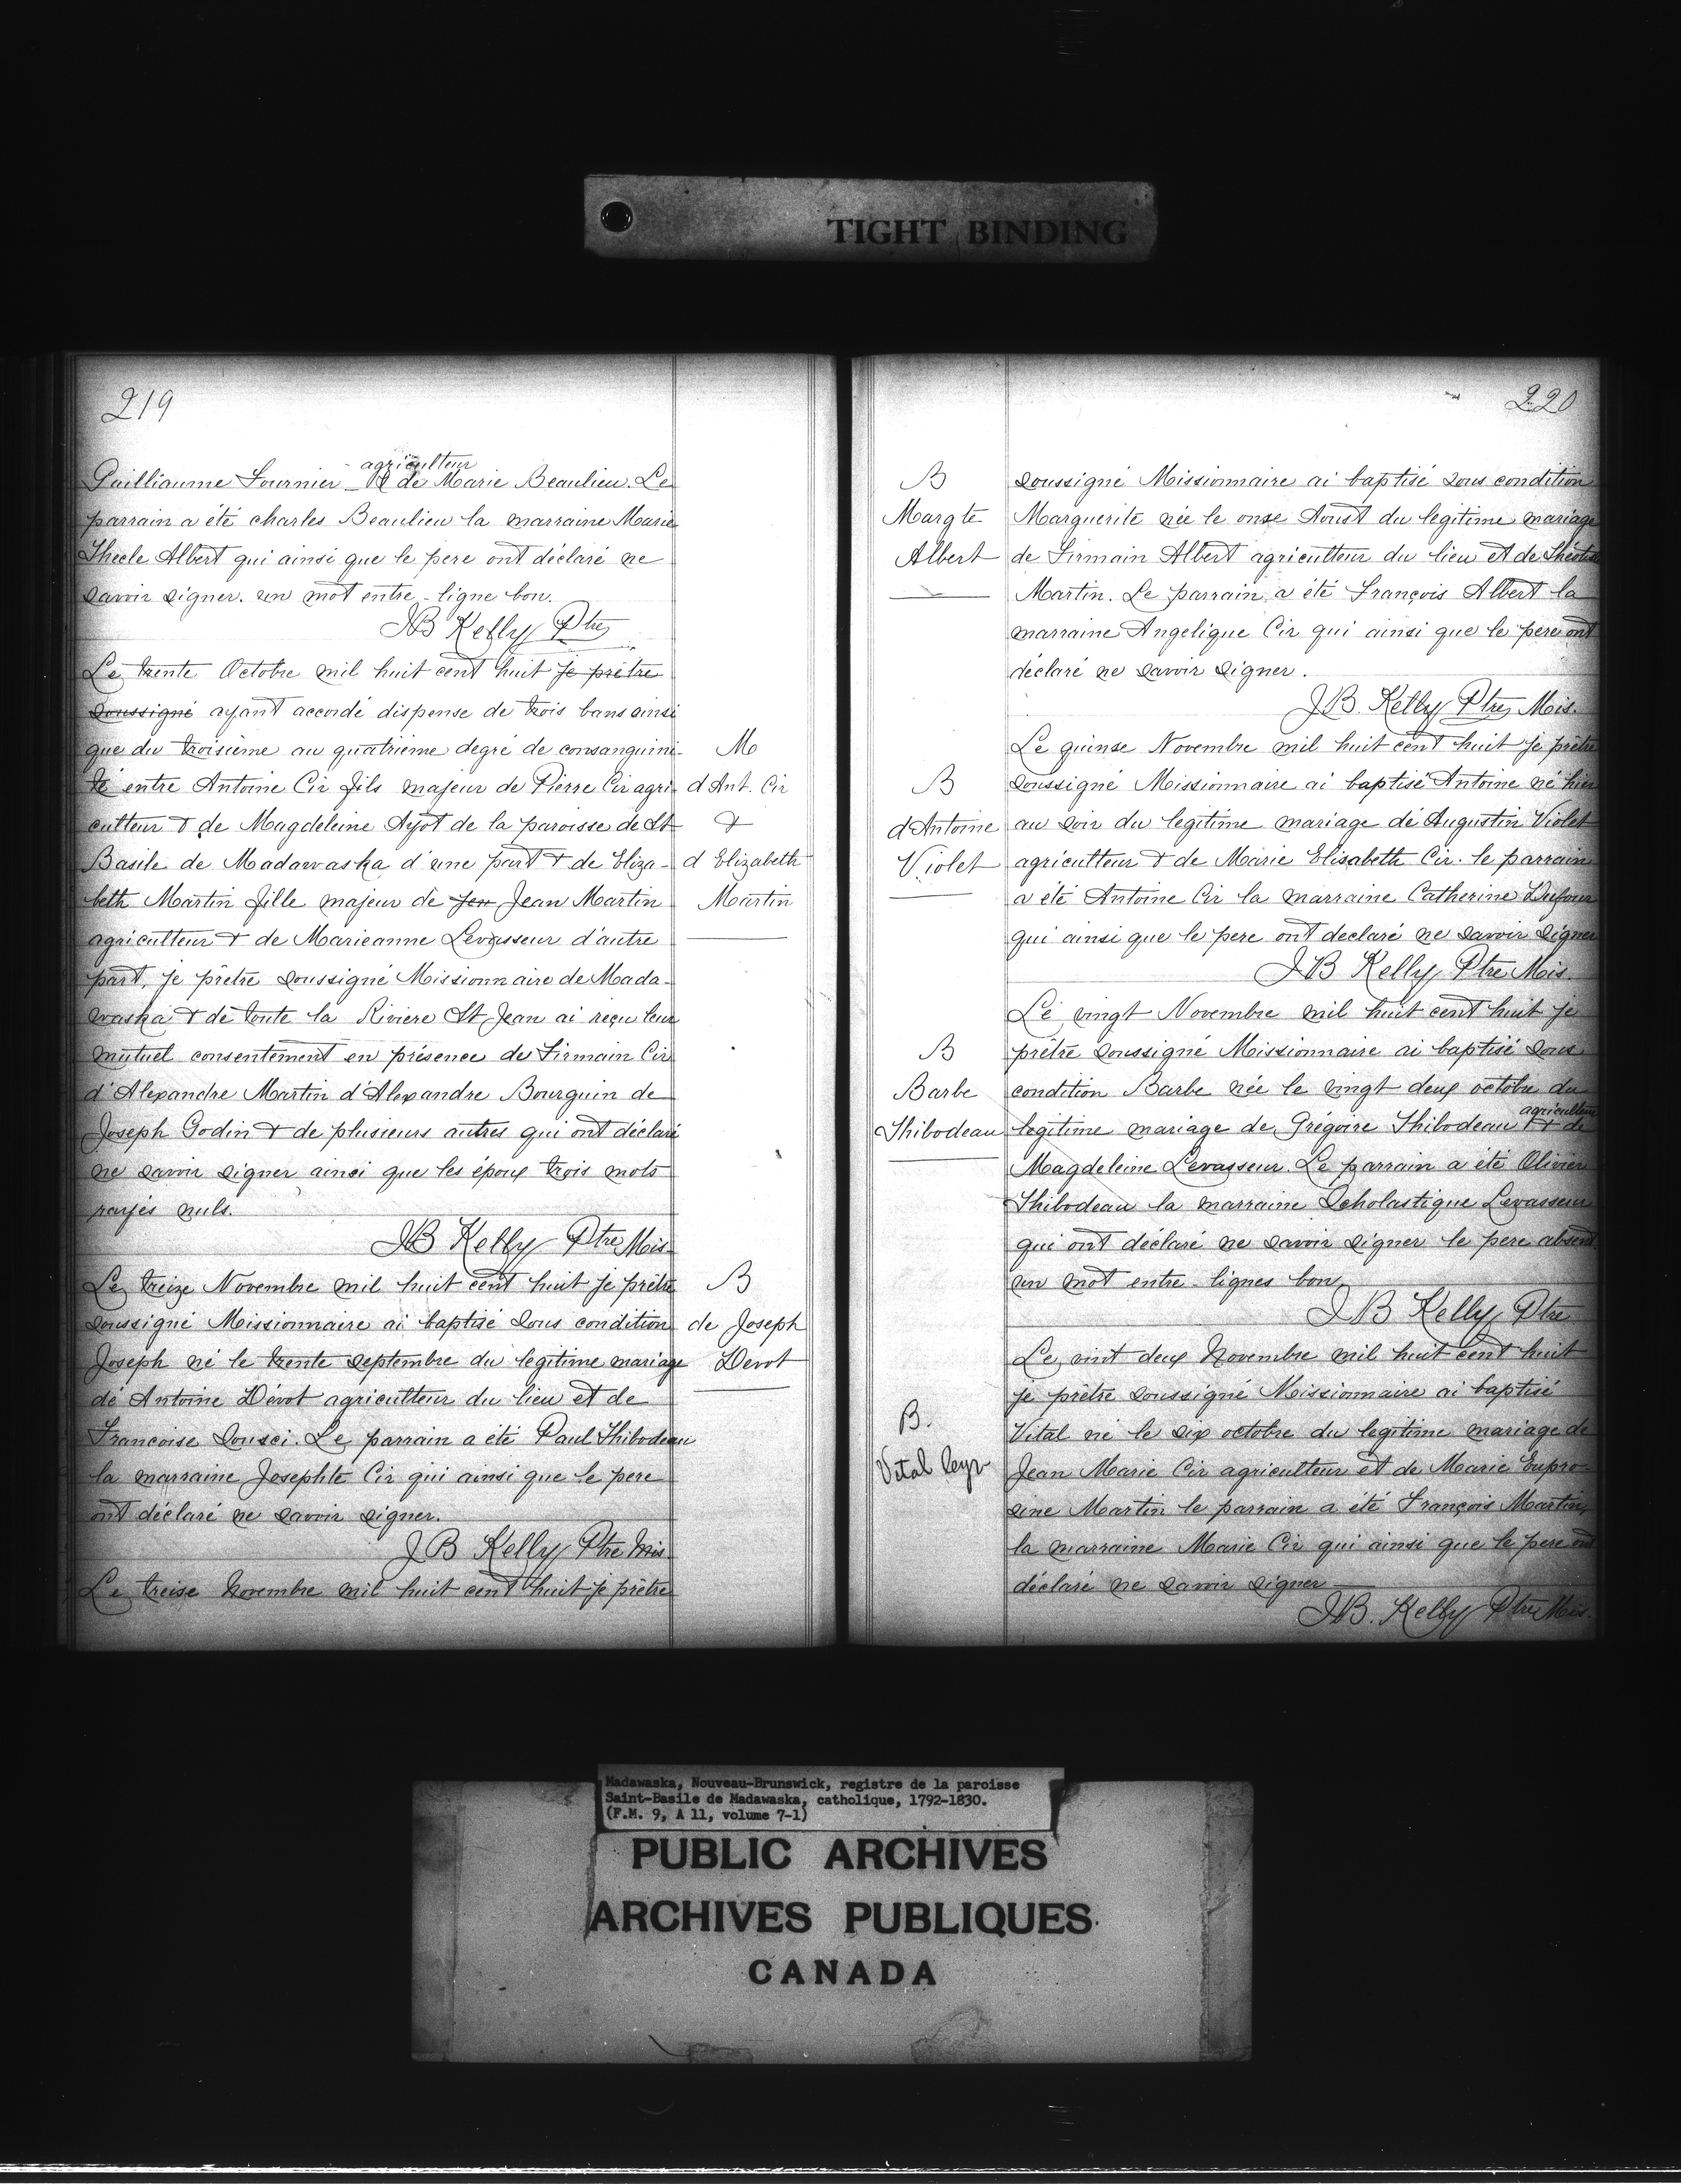 TIGHT BINDING
219
agriculteur
Guilliaume Fournier & de Marie Beaulieu. Le
parrain a été charles Beaulieu la marraine Marie
Thecle Albert qui ainsi que le pere ont déclaré ne
savoir signer. un mot entre-ligne bon.
JB Kelly Ptre
Le trente Octobre mil huit cent huit je prêtre
soussigné ayant accordé dispense de trois bans ainsi
que du troisième au quatrième degré de consanguini-
té entre Antoine Cir fils majeur de Pierre Cir agri-
culteur & de Magdeleine Ayot de la paroisse de St
Basile de Madawaska d'une part & de Eliza-
beth Martin fille majeur de feu Jean Martin
agriculteur & de Marieanne Levasseur d'autre
part, je prêtre soussigné Missionnaire de Mada-
waska & de toute la Riviere St Jean ai reçu leur
mutuel consentement en présence de Firmain Cir
d'Alexandre Martin d'Alexandre Bourguin de
Joseph Godin & de plusieurs autres qui ont déclaré
ne savoir signer ainsi que les époux trois mots
rayés nuls.
JB Kelly Ptre Mis.
M
d Ant. Cir
&
d Elizabeth
Martin
Le treize Novembre mil huit cent huit je prêtre
soussigné Missionnaire ai baptisé sous condition
Joseph né le trente septembre du legitime mariage
de Antoine Dévot agriculteur du lieu et de
Francoise Sousci. Le parrain a été Paul Thibodeau
la marraine Josephte Cir qui ainsi que le pere
ont déclaré ne savoir signer.
JB Kelly Ptre Mis
B
de Joseph
Devot
Le treise Novembre mil huit cent huit je prêtre
220
B
Margte
Albert
soussigné Missionnaire ai baptisé sous condition
Marguerite née le onse Aoust du legitime mariage
de Firmain Albert agriculteur du lieu et de Théotiste
Martin. Le parrain a été François Albert la
marraine Angelique Cir qui ainsi que le pere ont
déclaré ne savoir signer.
J.B. Kelly Ptre Mis.
B
d'Antoine
Violet
Le quinse Novembre mil huit cent huit je prêtre
soussigné Missionnaire ai baptisé Antoine né hier
au soir du legitime mariage de Augustin Violet
agriculteur & de Marie Elisabeth Cir. le parrain
a été Antoine Cir la marraine Catherine Dufour
qui ainsi que le pere ont declaré ne savoir signer
JB Kelly Ptre Mis.
B
Barbe
Thibodeau
Le vingt Novembre mil huit cent huit je
prêtre soussigné Missionnaire ai baptisé sous
condition Barbe née le vingt deux octobre du
agriculteur
legitime mariage de Grégoire Thibodeau & de
Magdeleine Levasseur. Le parrain a été Olivier
Thibodeau la marraine Scholastique Levasseur
qui ont déclaré ne savoir signer le pere absent
un mot entre-lignes bon
JB Kelly Ptre
B.
Vital Cyr
Le vint deux Novembre mil huit cent huit
je prêtre soussigné Missionnaire ai baptisé
Vital né le six octobre du legitime mariage de
Jean Marie Cir agriculteur et de Marie Eupro-
sine Martin le parrain a été François Martin,
la marraine Marie Cir qui ainsi que le pere ont
déclaré ne savoir signer
J.B. Kelly Ptre Mis.
Madawaska, Nouveau-Brunswick, registre de la paroisse
Saint-Basile de Madawaska, catholique, 1792-1830.
(F.M. 9, A 11, volume 7-1)
PUBLIC ARCHIVES
ARCHIVES PUBLIQUES
CANADA